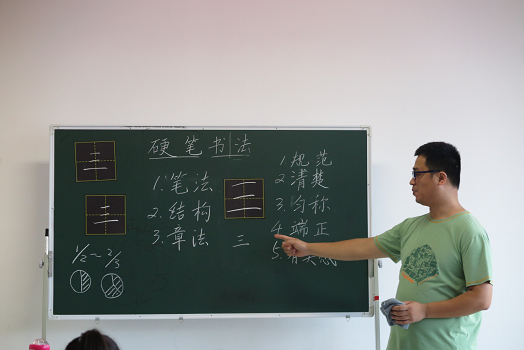 硬笔书法
三
三
1/2～2/3
1.笔法
2.结构
3.章法
三
三
1 规范
2 清楚
3.匀称
4 端正
5.